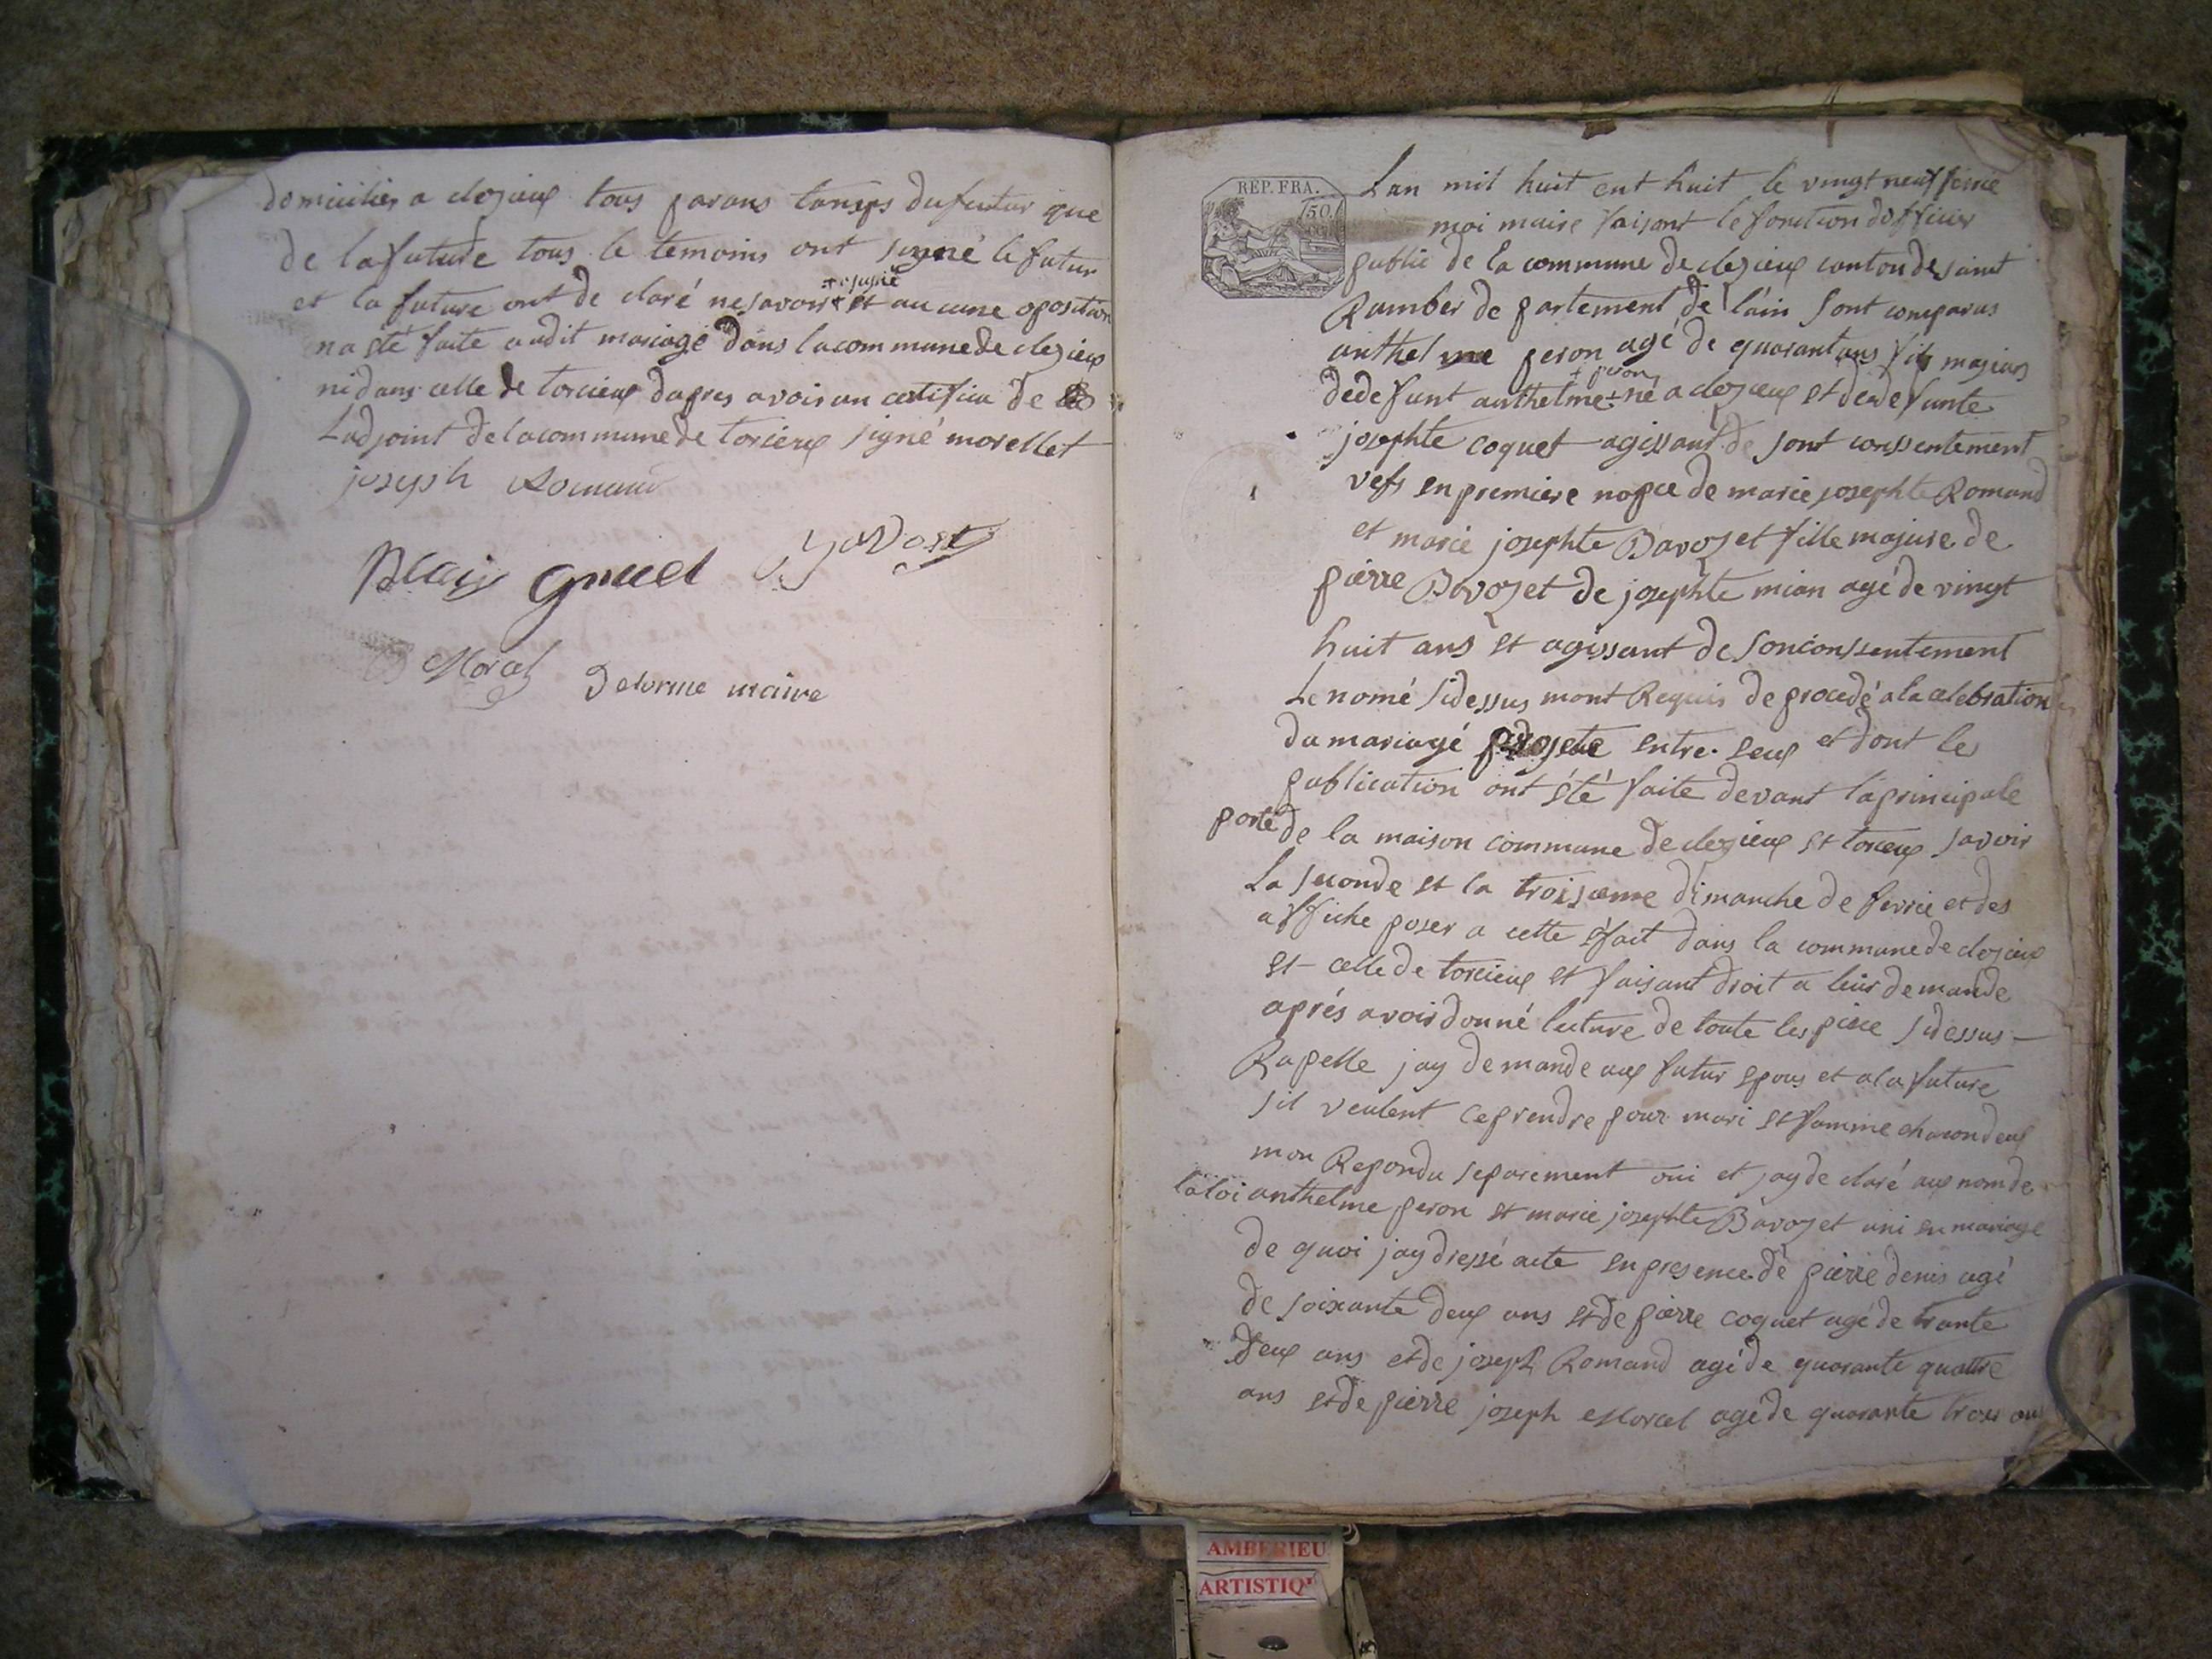 domicilier a clezieux tous parans tansps du futur que
de la future tous le temoins ont signé le futur
+ signé
et la future ont de claré ne savoir + et aucune oposition
na eté faite audit mariage dans la commune de clezieux
ni dans celle de torcieux dapres avoir un certifica de
Ladjoint de la commune de torcieux signé morellet
joseph Romand
Blaix
Morcel Delorme maire
REP. FRA.
50
Lan mil huit cent huit le vingt neuf ferrié
moi maire faisant le fonction dofficier
public de la commune de clezieux canton de saint
Ramber de partement de lain sont comparus
anthelme peron agé de quarant ans fils majeurs
+ peron
de defunt anthelme + né a clezieux et de defunte
josephte coquet agissant de sont conssentement
vefs en premiere nopce de marie josephte Romand
et marie josephte Bavozet fille majure de
pierre Bavozet de josephte mian agé de vingt
huit ans et agissant de son conssentement
Le nomé sidessus mont Requis de procedé a la celebration
du mariagé projeté entre seux et dont les
publication ont été faite devant la principale
porte de la maison commune de clezieux et torcieux savoir
La seconde et la troisieme dimanche de ferrie et des
affiche poser a cette éfait dans la commune de clezieux
et celle de torcieux et faisant droit a leur demande
aprés avoir donné lecture de toute les piece sidessus
Rapelle jay demande aux futur epous et a la future
sil veulent ce prendre pour mari et famme chacon deux
mon Repondu separement oui et jay de claré aux nom de
la loi anthelme peron et marie josephte Bavozet uni en mariage
de quoi jay dressé acte en presence de pierre denis agé
de soixante deux ans et de pierre coquet agé de trante
deux ans et de joseph Romand agé de quarante quattre
ans et de pierre joseph Morcel agé de quarante trois ans
AMBERIEU
ARTISTIQ